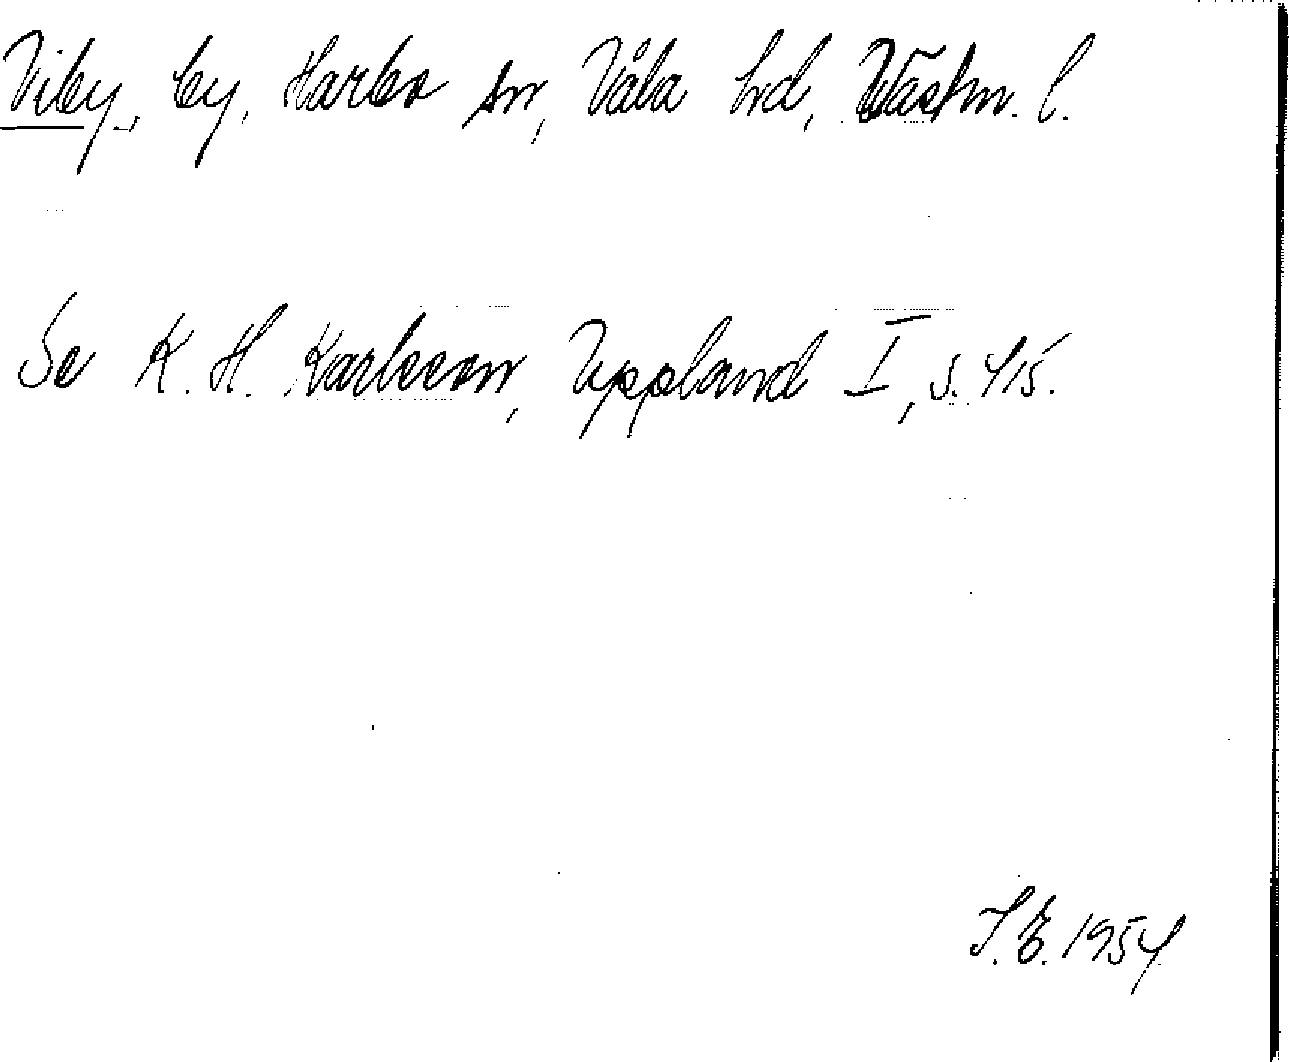 Viby, by, Harbo sn, Våla hd, Västm. l.
Se K. H. Karlsson, Uppland I, s. 415.
I. E. 1954